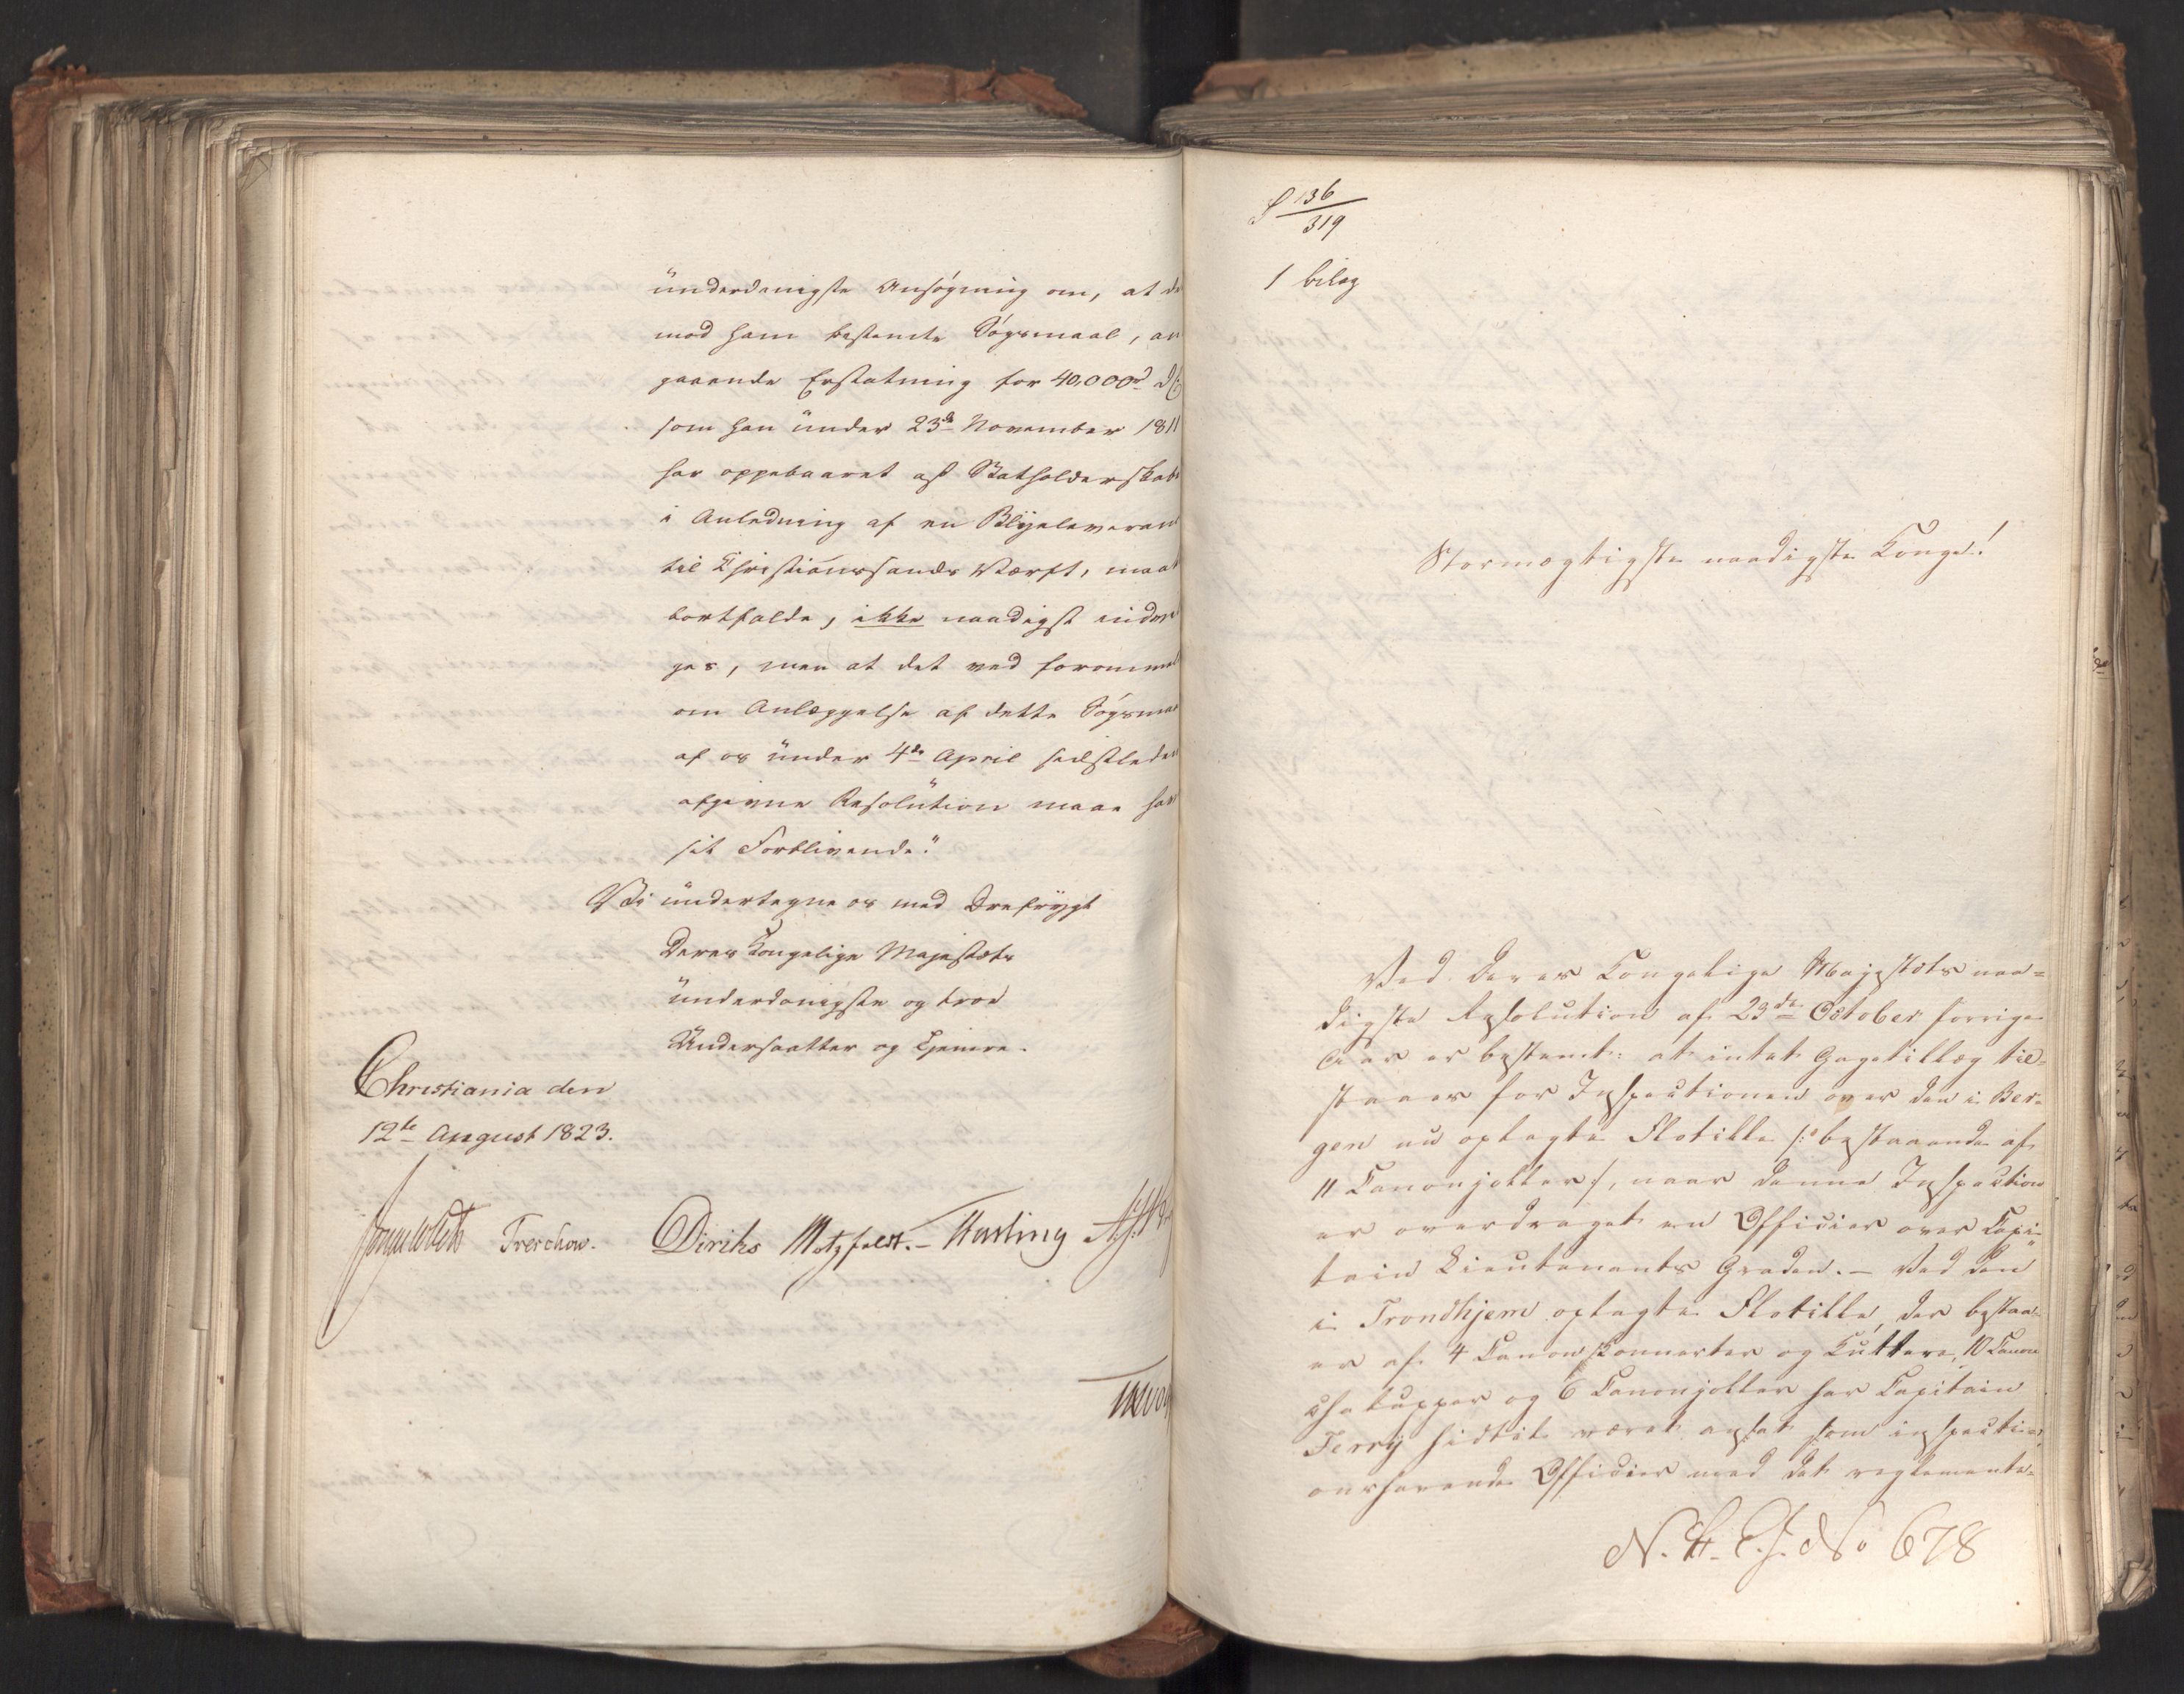 ünderdanigste Ansøgning om, at de
mod ham bestemte Søgsmaal, an
gaaende Erstatning for 40,000rd DC
som han ünder 23de November 1811
har oppebaaret af Statholderskabe
i Anledning af en Blyeleveran
til Christianssands Værft, maat
bortfalde, ikke naadigst indvil
ges, men at det ved forommel
om Anlæggelse af dette Søgsmaa
af os ünder 4de April sidstleden
afgivne Resolution maae hav
sit Forblivende."
Vi ündertegne os med Ærefrygt
Deres Kongelige Majestæts
ünderdanigste og troe
Undersaatter og Tjenere.
Christiania den
12te August 1823.
Sommerhielm Treschow. Diriks Motzfeldt. Fasting
S 136/319
1 bilag
Stormægtigste naadigste Konge!
Ved Deres Kongelige Majestæts naa=
digste Resolution af 23de October forrige
Aar er bestemt: at intet Gagetillæg til=
staaes for Inspectionen over den i Ber=
gen nu oplagte Flotille /: bestaaende af
11 Canonjoller :/, naar denne Inspection
er overdraget en Officier over Capi=
tain Lieutenants Graden. — Ved den
i Trondhjem oplagte Flotille, der bestaa=
er af 4 Canonskonnerter og Kuttere, 10 Canon
Chalupper og 6 Canonjoller har Capitain
Ferry hidtil været ansat som inspecti=
onshavende Officier med det reglemente=
No 678